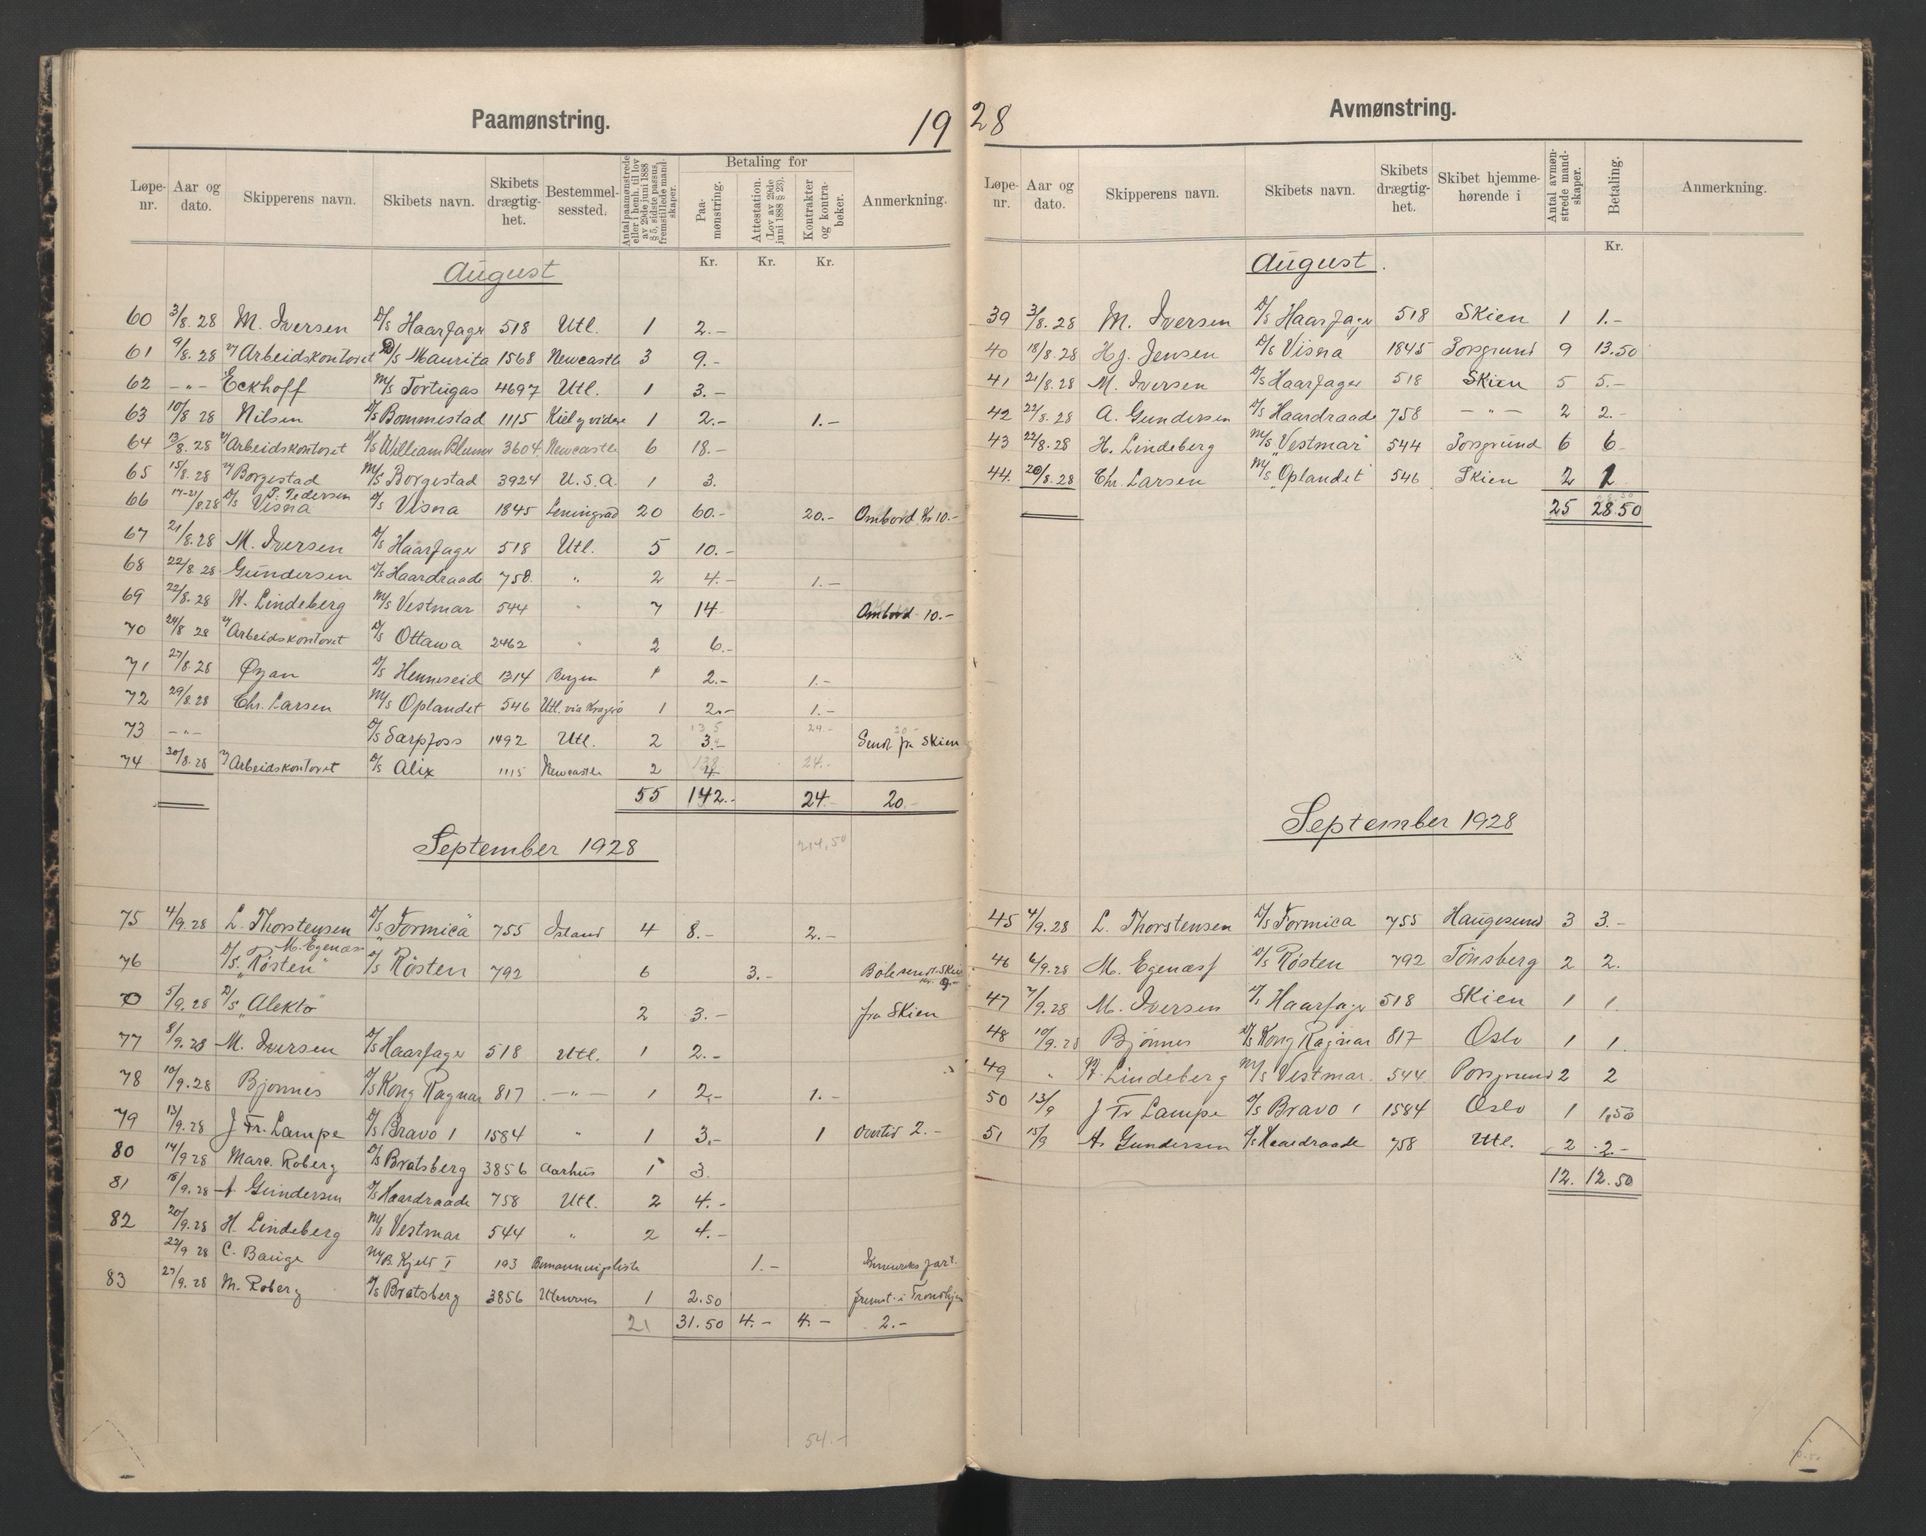 Paamønstring.
19
Løpe-nr. Aar og dato. Skipperens navn. Skibets navn. Skibets drægtighet. Bestemmelsessted. Antal paamønstrede eller i henh. til lov av 29de juni 1888 § 5, sidste passus, fremstillede mandskaper. Betaling for Paamønstring. Attestation. (Lov av 29de juni 1888 § 23). Kontrakter og kontrabøker. Anmerkning.
Kr. Kr. Kr.
August
60 3/8.28 M. Iversen D/S Haarfager 518 Utl. 1 2.-
61 9/8.28 v/Arbeidskontoret D/S Maurita 1568 Newcastle 3 9.-
62 -"- Eckhoff M/S Tortugas 4697 Utl. 1 3.-
63 10/8 28 Nilsen D/S Bommestad 1115 Kiel og videre 1 2.- 1.-
64 13/8.28 v/Arbeidskontoret D/S William Blumer 3604 Newcastle 6 18.-
65 15/8.28 v/Borgestad M/S Borgestad 3924 U.S.A. 1 3.
66 17-21/8.28 D/S Visna T. Pedersen D/S Visna 1845 Leningrad 20 60.- 20.- Ombord Kr 10.-
67 21/8.28 M. Iversen D/S Haarfager 518 Utl. 5 10.-
68 22/8.28 Gundersen D/S Haardraade 758 " 2 4.- 1.-
69 22/8.28 H. Lindeberg M/S Vestmar 544 " 7 14 Ombord 10.-
70 24/8 28 v/Arbeidskontoret D/S Ottawa 2462 " 2 6.-
71 27/8.28 Øyan D/S Henneseid 1314 Bergen 1 2.- 1.-
72 29/8.28 Chr. Larsen M/S Oplandet 546 Utl. via Kragerø 1 2.- 1.-
73 -"- D/S Sarpfoss 1492 Utl. 2 3.- Sendt fra Skien
74 30/8.28 v/Arbeidskontoret D/S Alix 1115 Newcastle 2 4
55 142.- 24.- 20.-
September 1928
214,50
75 4/9.28 L. Thorstensen D/S "Formica" 755 Island 4 8.- 2.-
76 D/S. "Røsten" M. Egenæs D/S Røsten 792 6 3.-
70 5/9.28 D/S "Alekto" 2 3.- fra Skien
77 8/9.28 M. Iversen D/S Haarfager 518 Utl. 1 2.-
78 10/9.28 Bjønnes D/S Kong Ragnar 817 -"- 1 2.- 1.-
79 13/9.28 J Fr. Lampe D/S Bravo 1 1584 " 1 3.- 1 Overtid 2.-
80 14/9 28 Marc. Roberg D/S Bratsberg 3856 Aarhus 1 3.
81 18/9.28 A Gundersen D/S Haardraade 758 Utl. 2 4.-
82 20/9.28 H. Lindeberg M/S Vestmar 544 " 2 4.-
22/9 28 C. Bauge M/B. Kjell I 193 Bemanningsliste 1.- Innenriks fart.
83 27/9.28 M. Roberg D/S Bratsberg 3856 Utenriks 1 2.50 fremst. i Trondhjem
21 31.50 4.- 4.- 2.-
54.-
28
Avmønstring.
Løpe-nr. Aar og dato. Skipperens navn. Skibets navn. Skibets drægtighet. Skibet hjemmehørende i Antal avmønstrede mandskaper. Betaling. Anmerkning.
Kr.
August.
39 3/8.28 M. Iversen D/S Haarfager 518 Skien 1 1.-
40 18/8.28 Hj. Jensen D/S Visna 1845 Porsgrund 9 13.50
41 21/8.28 M. Iversen D/S Haarfager 518 Skien 5 5.-
42 22/8.28 A. Gundersen D/S Haardraade 758 -"- 2 2.-
43 22/8.28 H. Lindeberg M/S "Vestmar" 544 Porsgrund 6 6.
44. 29/8.28 Chr. Larsen M/S "Oplandet" 546 Skien 2 1
25 28.50
September 1928
45 4/9.28 L. Thorstensen D/S Formica 755 Haugesund 3 3.-
46 6/9.28 M. Egenæs D/S Røsten 792 Tønsberg 2 2.
47 7/9.28 M. Iversen D/S Haarfager 518 Skien 1 1.
48 10/9.28 Bjønnes D/S Kong Ragnar 817 Oslo 1 1.
49 " H. Lindeberg M/S Vestmar. 544 Porsgrund 2 2
50 13/9 J Fr Lampe D/S Bravo 1 1584 Oslo 1 1.50
51 15/9 A. Gundersen D/S Haardraade 758 Utl. 2 2.-
12. 12.50